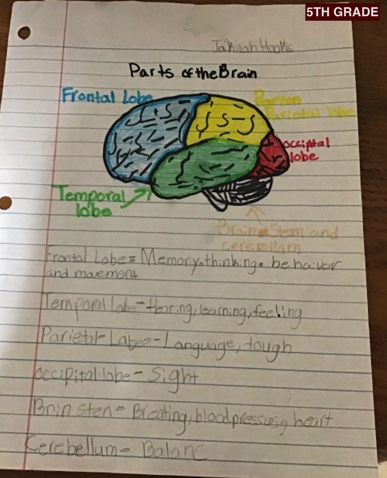 5TH GRADE
Parts of the Brain
Frontal Lobe
Parietal lobe
occipital
lobe
Temporal
lobe
Brain Stem and
cerebellam
Frontal Lobe= Memory, thinking, behaiver
and movement
Temporal Lobe- Hearing, learning, feeling
Parietal Labe- Language, tough
occipital lobe- Sight
Brain sten- Breating, blood pressure, heart
Cerebellum- Balanc